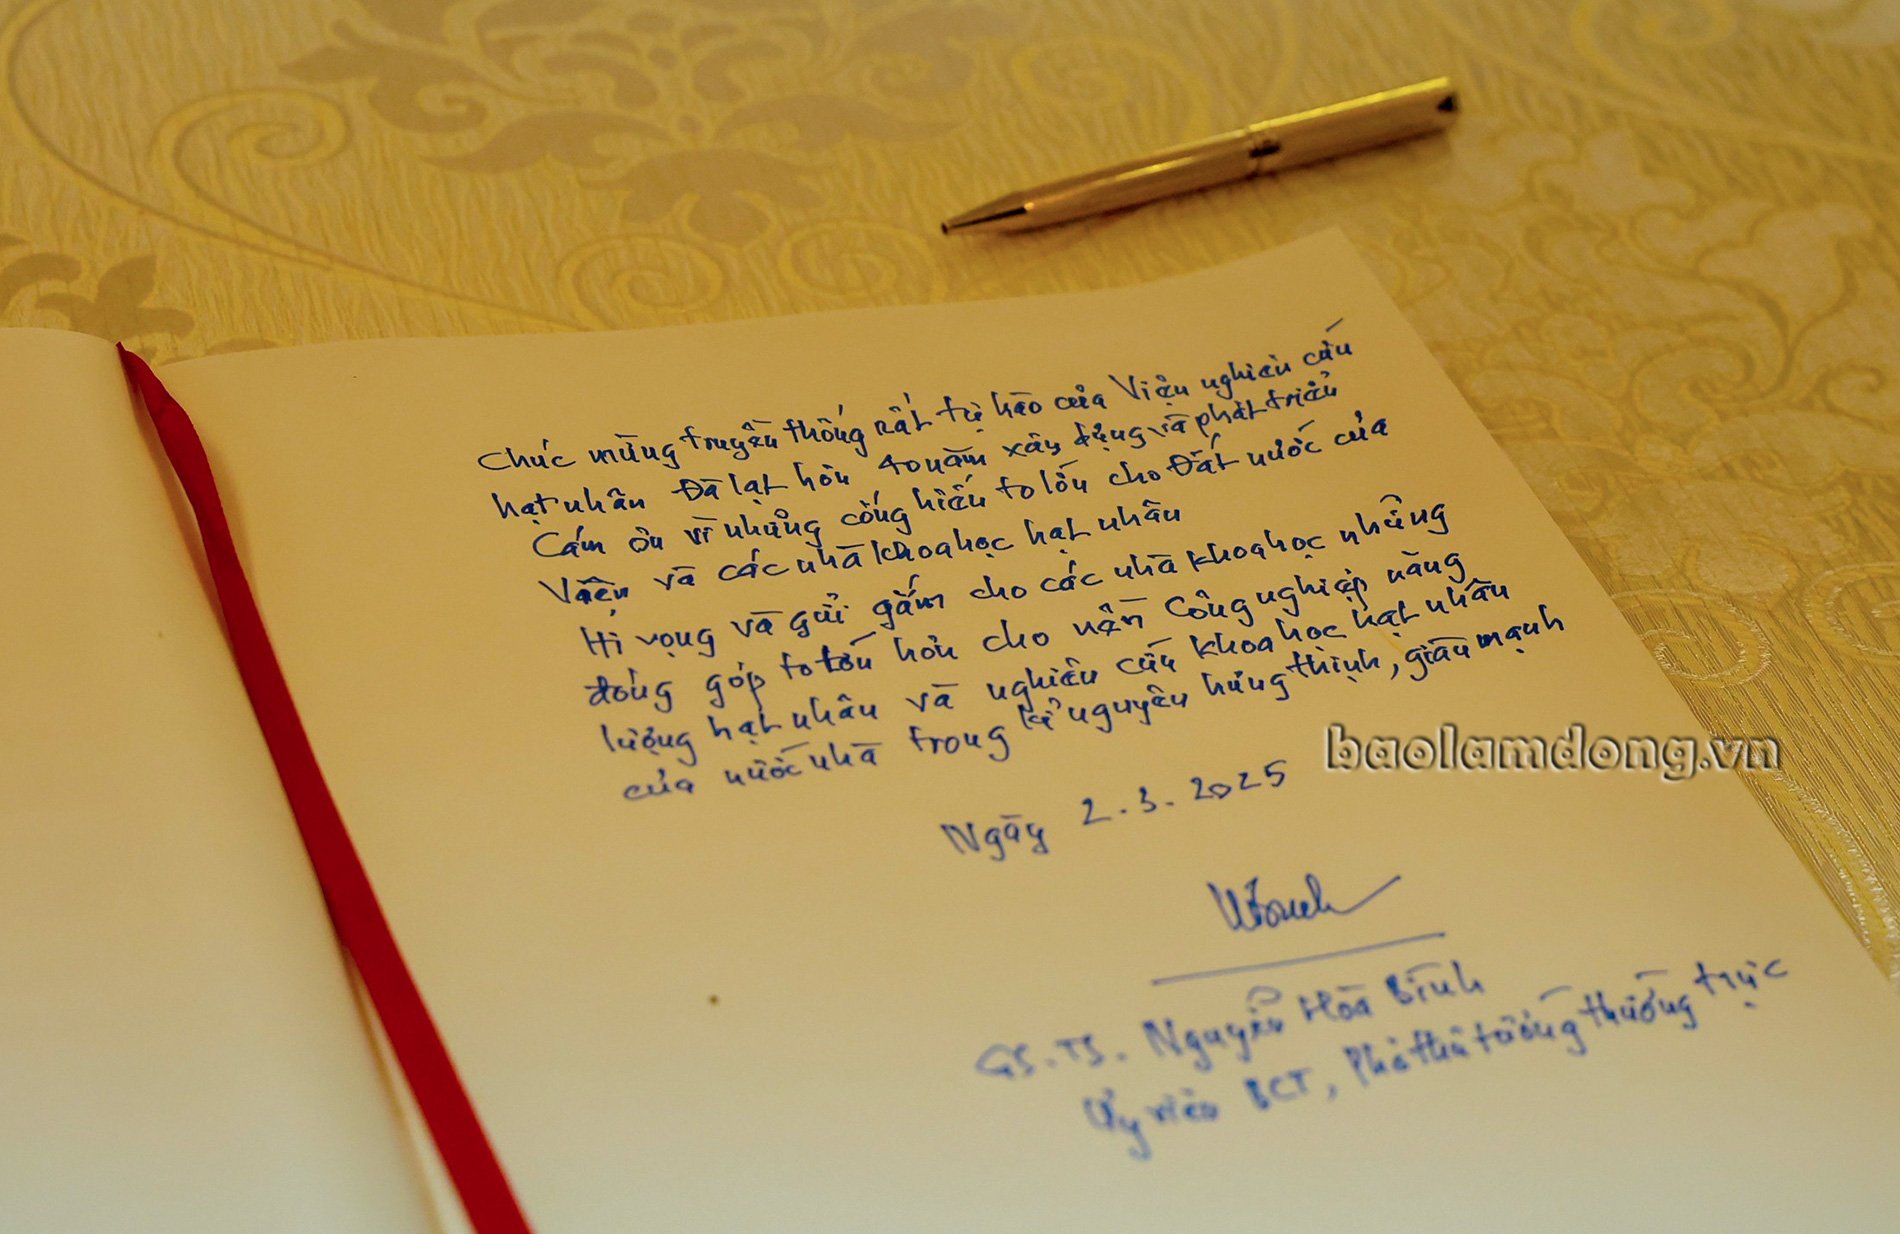 Chúc mừng truyền thống rất tự hào của Viện nghiên cứu
hạt nhân Đà lạt hơn 40 năm xây dựng và phát triển
Cám ơn vì những cống hiến to lớn cho Đất nước của
Viện và các nhà khoa học hạt nhân
Hi vọng và gửi gắm cho các nhà khoa học những
đóng góp to lớn hơn cho nền Công nghiệp năng
lượng hạt nhân và nghiên cứu khoa học hạt nhân
của nước nhà trong kỉ nguyên hưng thịnh, giàu mạnh
baolamdong.vn
Ngày 2.3.2025
GS.TS. Nguyễn Hòa Bình
Ủy viên BCT, Phó thủ tướng thường trực